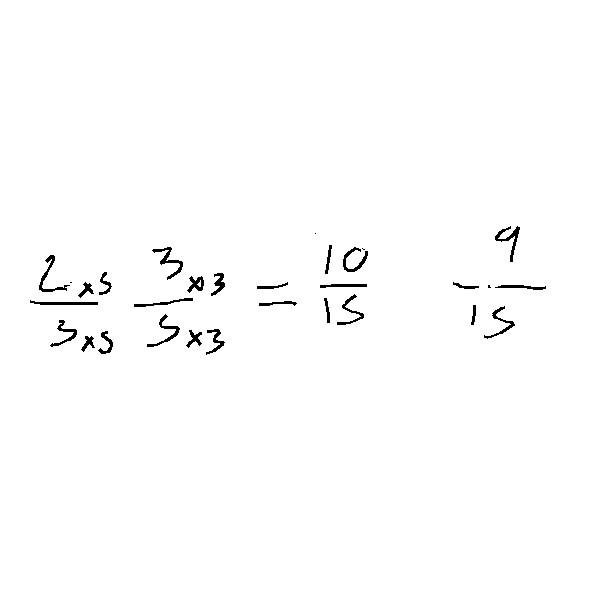 2×5/3×5 3×3/5×3 = 10/15 9/15